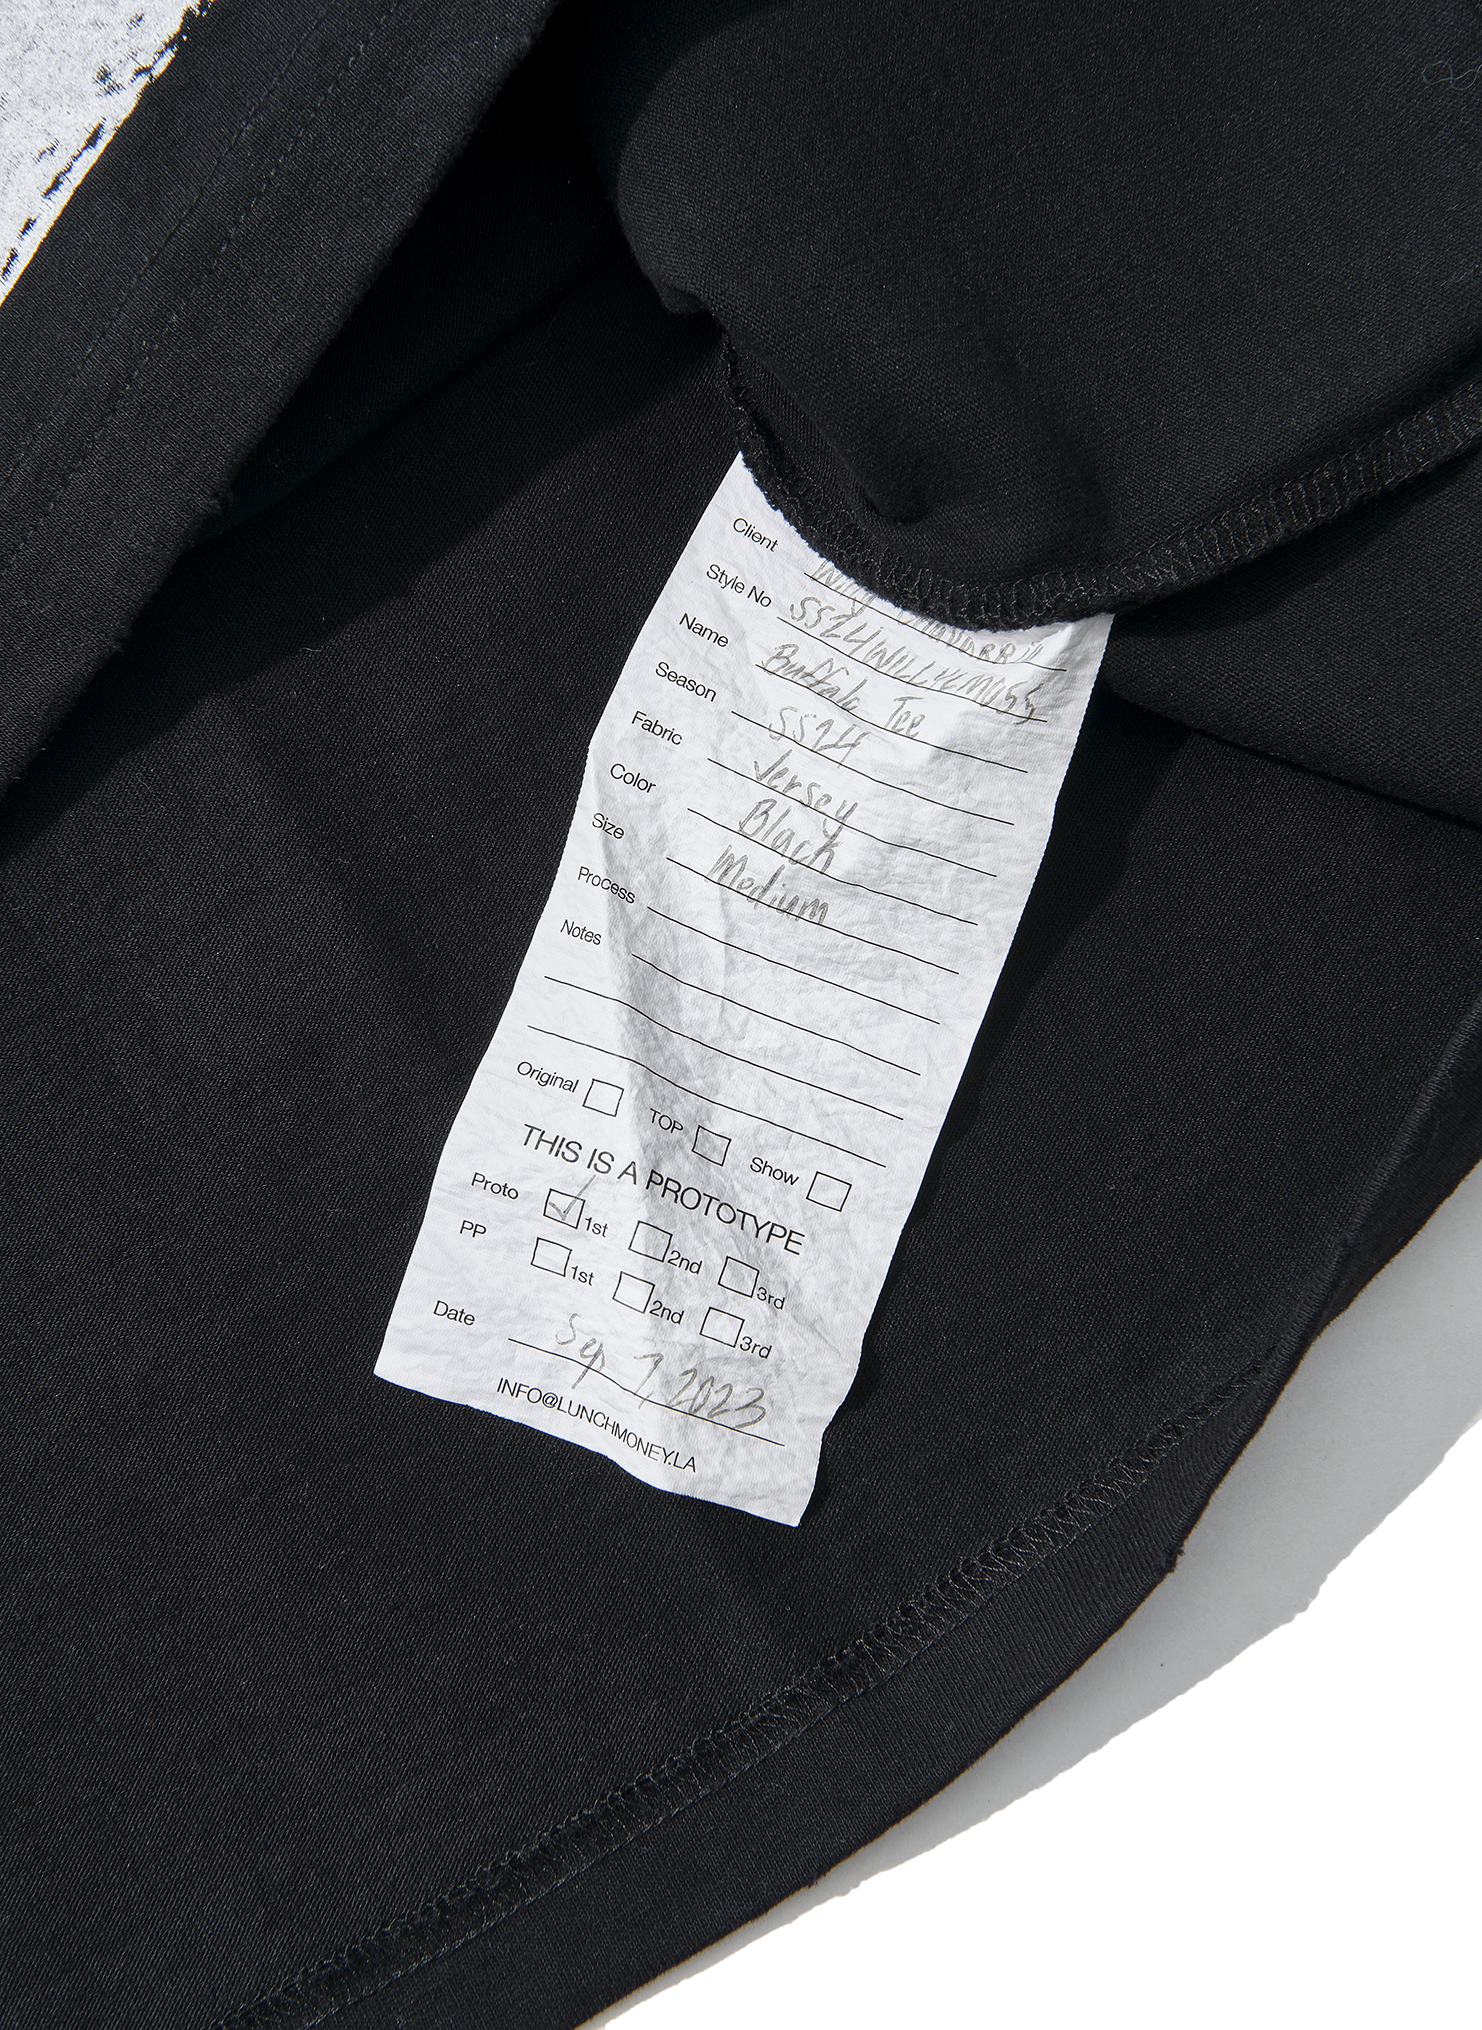 Client Willy Chavarria
Style No SS24WILLYCM055
Name Buffalo Tee
Season SS24
Fabric Jersey
Color Black
Size Medium
Process
Notes
Original TOP Show
THIS IS A PROTOTYPE
Proto 1st 2nd 3rd
PP 1st 2nd 3rd
Date Sep 7, 2023
INFO@LUNCHMONEY.LA